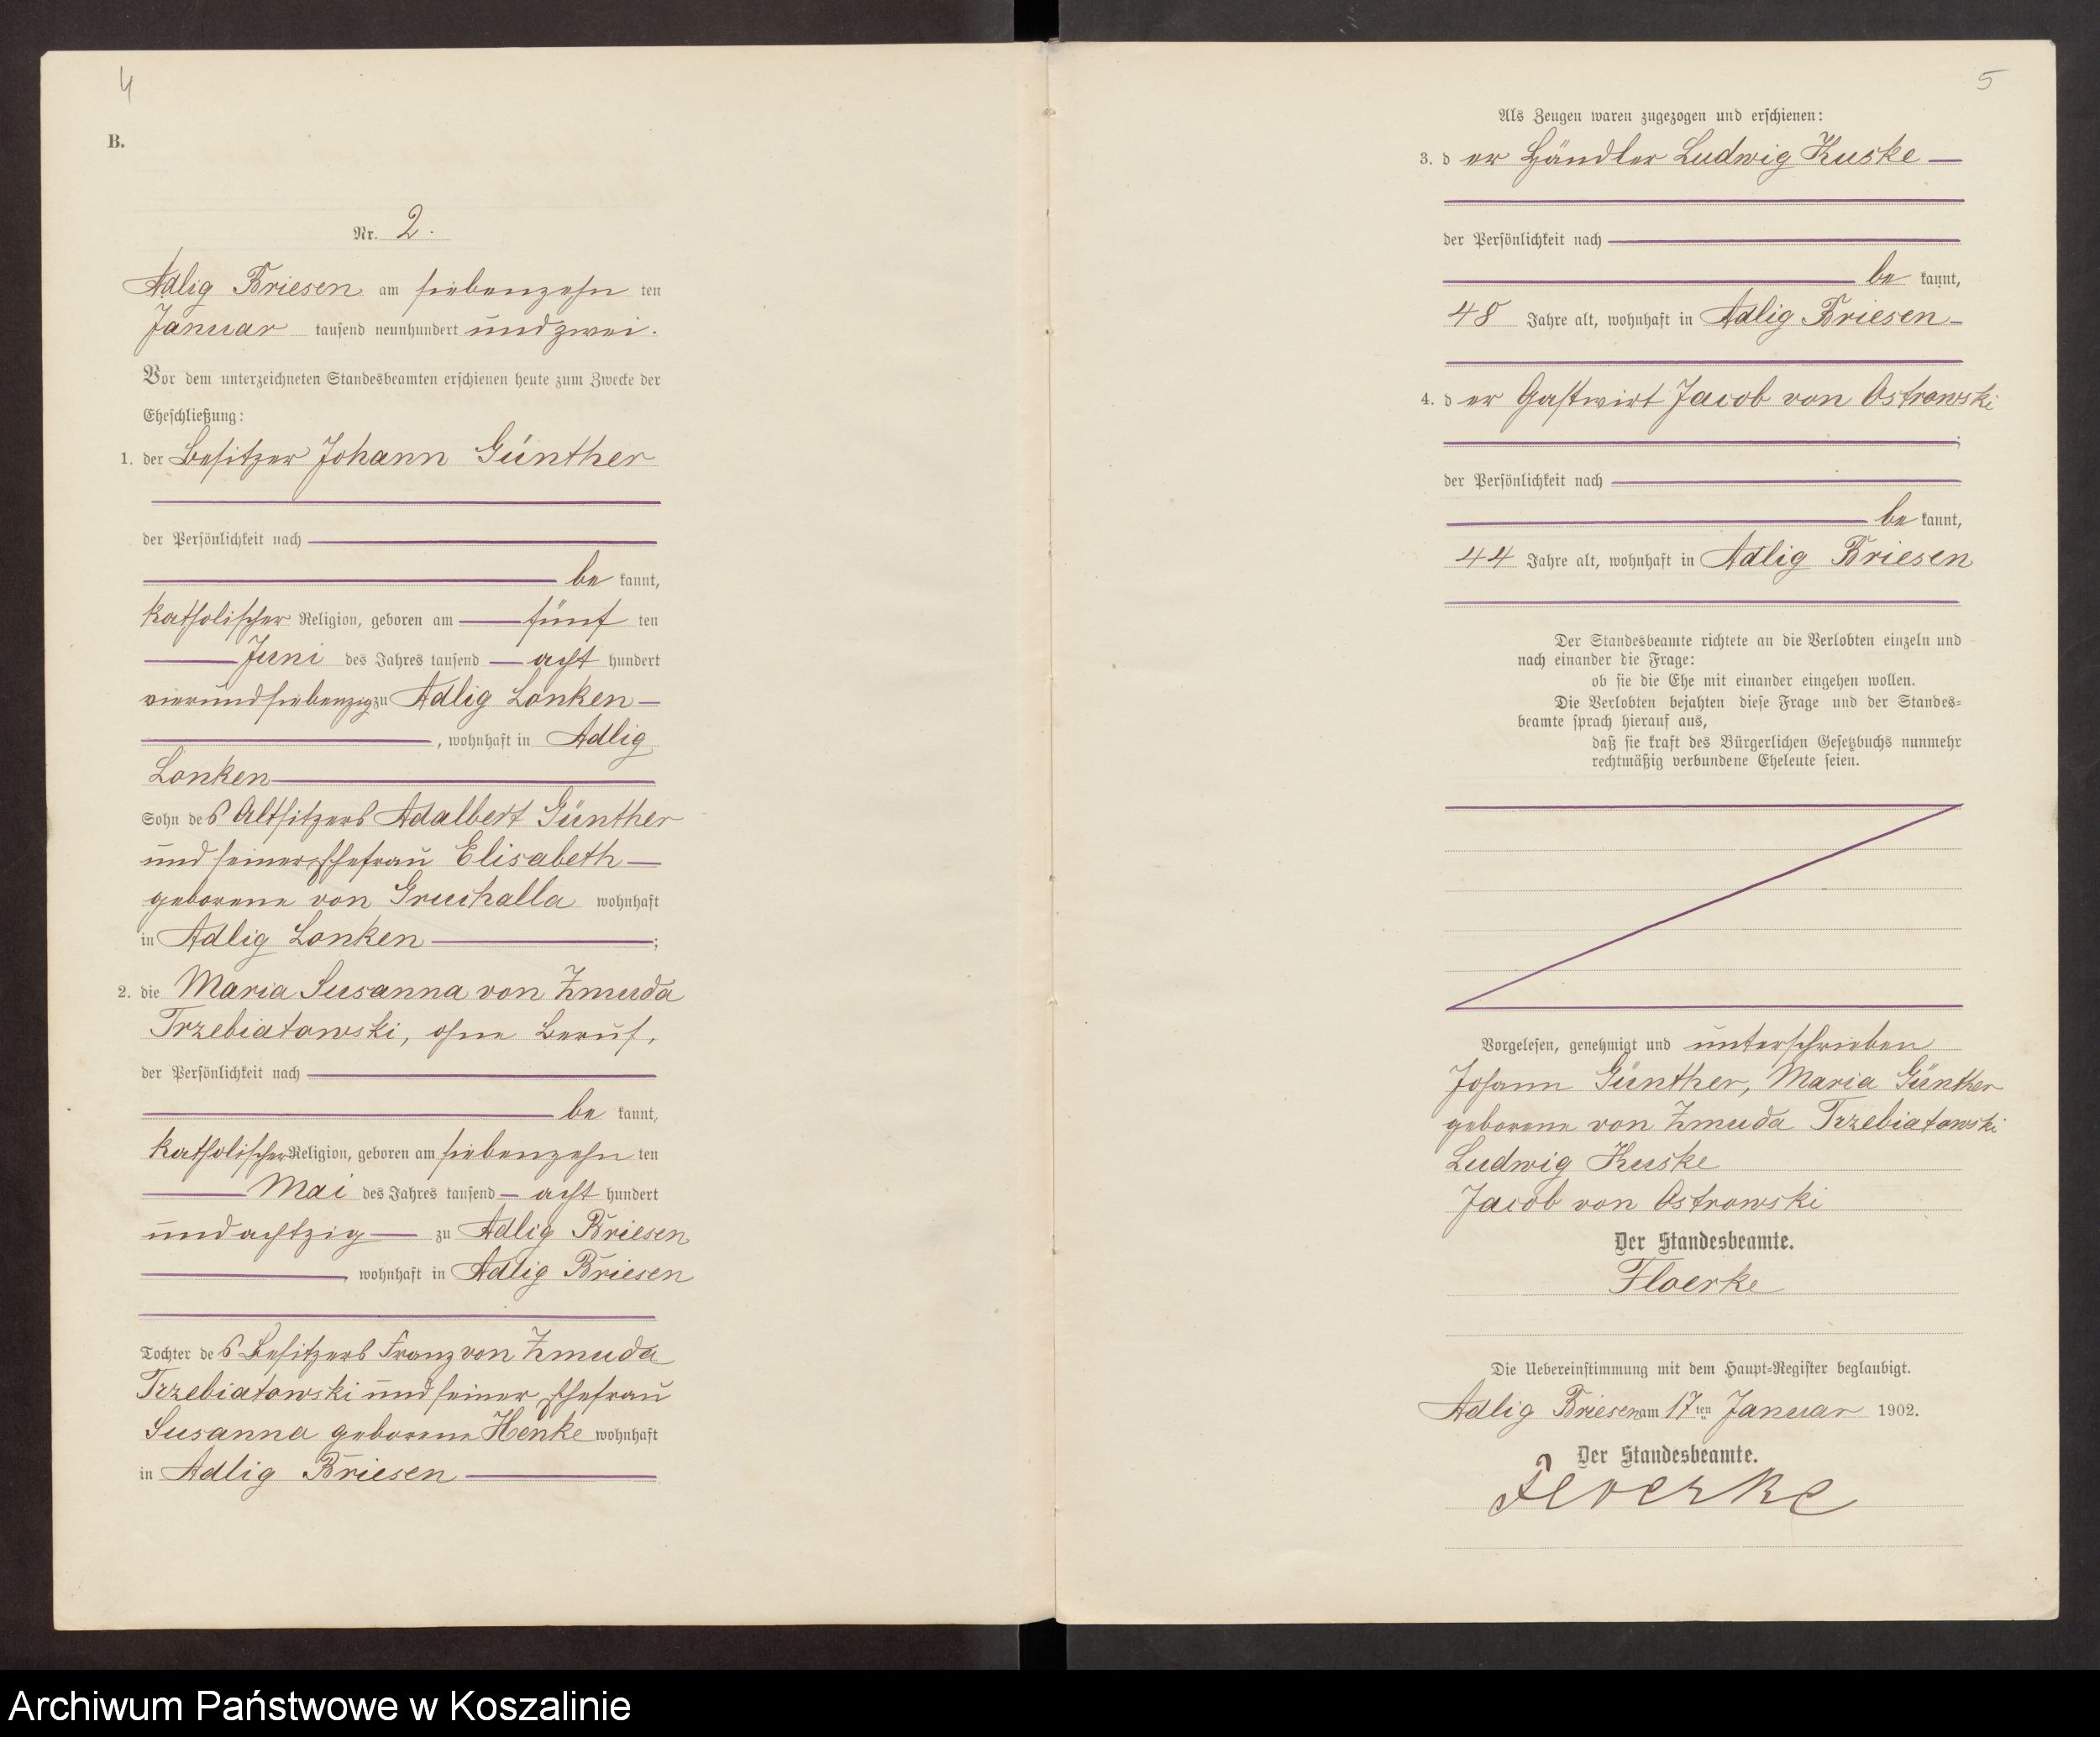 4
B.
Nr. 2.
Adlig Briesen am siebenzehn ten
Januar tausend neunhundert und zwei.
Vor dem unterzeichneten Standesbeamten erschienen heute zum Zwecke der
Eheschließung:
1. der Besitzer Johann Günther
der Persönlichkeit nach
be kannt,
katholischer Religion, geboren am fünf ten
Juni des Jahres tausend acht hundert
vierundsiebenzig zu Adlig Lonken
, wohnhaft in Adlig
Lonken
Sohn des Altsitzers Adalbert Günther
und seiner Ehefrau Elisabeth
geborene von Gruchalla wohnhaft
in Adlig Lonken ;
2. die Maria Susanna von Zmuda
Trzebiatowski, ohne Beruf,
der Persönlichkeit nach
be kannt,
katholischer Religion, geboren am siebenzehn ten
Mai des Jahres tausend acht hundert
undachtzig zu Adlig Briesen
, wohnhaft in Adlig Briesen
Tochter des Besitzers Franz von Zmuda
Trzebiatowski und seiner Ehefrau
Susanna geborene Henke wohnhaft
in Adlig Briesen
5
Als Zeugen waren zugezogen und erschienen:
3. der Händler Ludwig Kuske
der Persönlichkeit nach
be kannt,
48 Jahre alt, wohnhaft in Adlig Briesen
4. der Gastwirt Jacob von Ostrowski
;
der Persönlichkeit nach
be kannt,
44 Jahre alt, wohnhaft in Adlig Briesen
Der Standesbeamte richtete an die Verlobten einzeln und
nach einander die Frage:
ob sie die Ehe mit einander eingehen wollen.
Die Verlobten bejahten diese Frage und der Standes-
beamte sprach hierauf aus,
daß sie kraft des Bürgerlichen Gesetzbuchs nunmehr
rechtmäßig verbundene Eheleute seien.
Vorgelesen, genehmigt und unterschrieben
Johann Günther, Maria Günther
geborene von Zmuda Trzebiatowski
Ludwig Kuske
Jacob von Ostrowski
Der Standesbeamte.
Floerke
Die Uebereinstimmung mit dem Haupt-Register beglaubigt.
Adlig Briesen am 17ten Januar 1902.
Der Standesbeamte.
Floerke
Archiwum Państwowe w Koszalinie